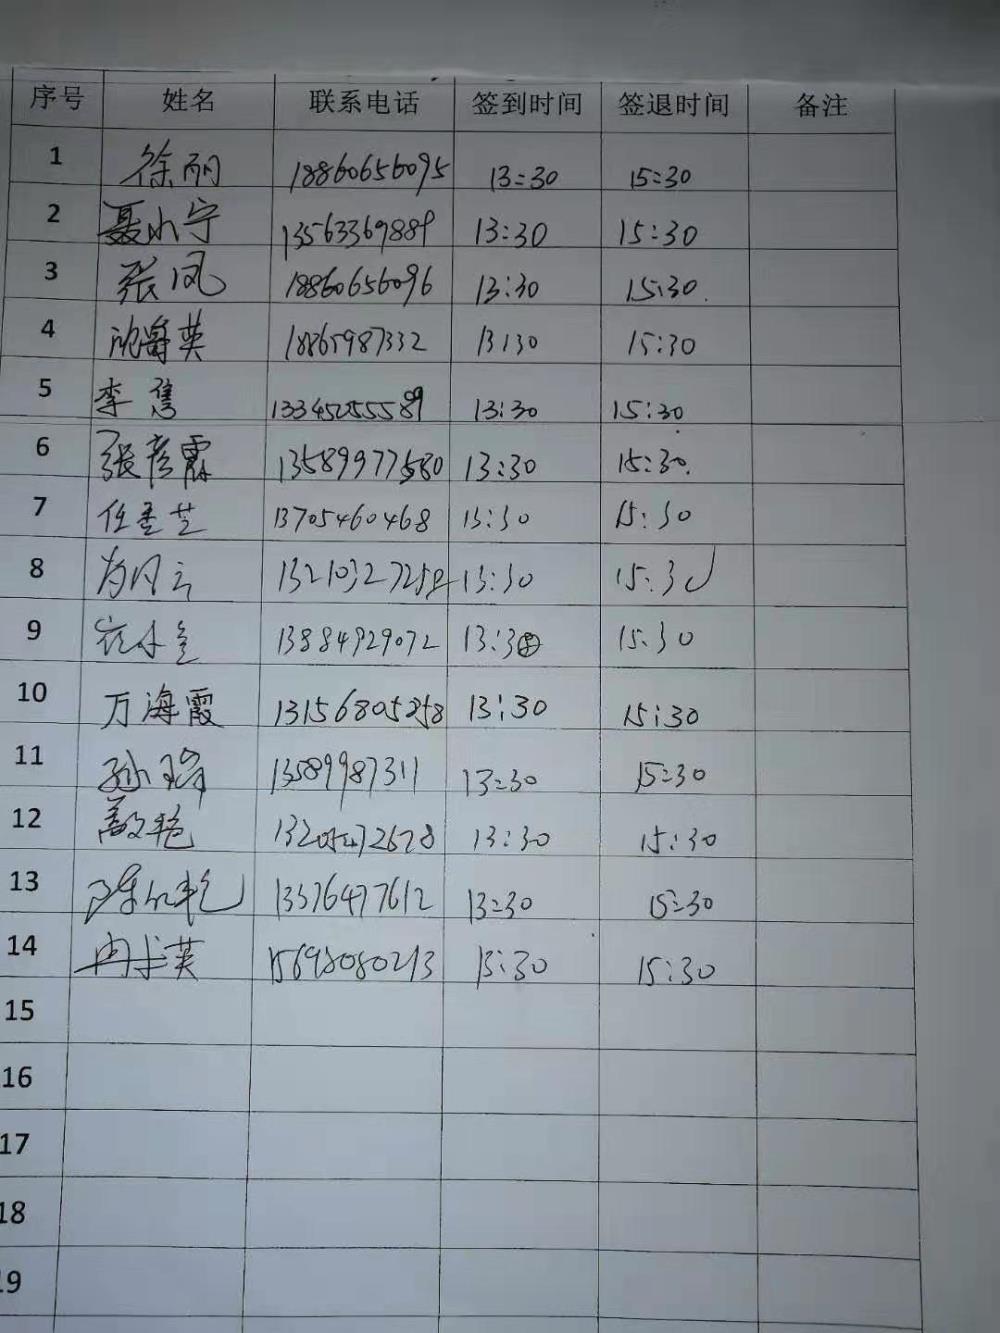 序号 姓名 联系电话 签到时间 签退时间 备注
1 徐丽 18860656095 13:30 15:30
2 聂小宁 13563369889 13:30 15:30
3 张凤 18860656096 13:30 15:30
4 英 18865987332 13:30 15:30
5 李隽 13:30 15:30
6 张彦霖 13589977580 13:30 15:30
7 任秀芝 13705460468 13:30 15:30
8 13:30 15:30
9 13884929072 13:30 15:30
10 万海霞 13156805258 13:30 15:30
11 孙瑞 13589987311 13:30 15:30
12 艳 13205472678 13:30 15:30
13 陈 艳 13376477612 13:30 15:30
14 冉 英 15698080213 13:30 15:30
15
16
17
18
19